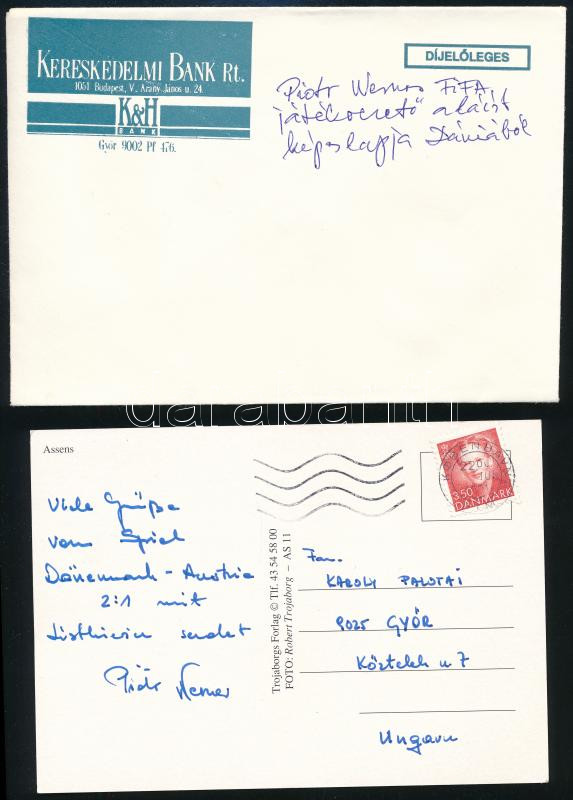 KERESKEDELMI BANK RT.
1051 Budapest, V. Arany János u. 24.
K&H
BANK
Győr 9002 Pf 476.
DÍJELŐLEGES
Piotr Werner FIFA
játékvezető aláírt
képeslapja Dániából
Assens
Viele Grüße
vom Spiel
Dänemark - Austria
2:1 mit
sendet
Piotr Werner
Trojaborgs Forlag © Tlf. 43 54 58 00
FOTO: Robert Trojaborg – AS 11
3.50
DANMARK
KØBENHAVN
Fam.
KAROLY PALOTAI
9025 GYŐR
Köztelek u 7
Ungarn